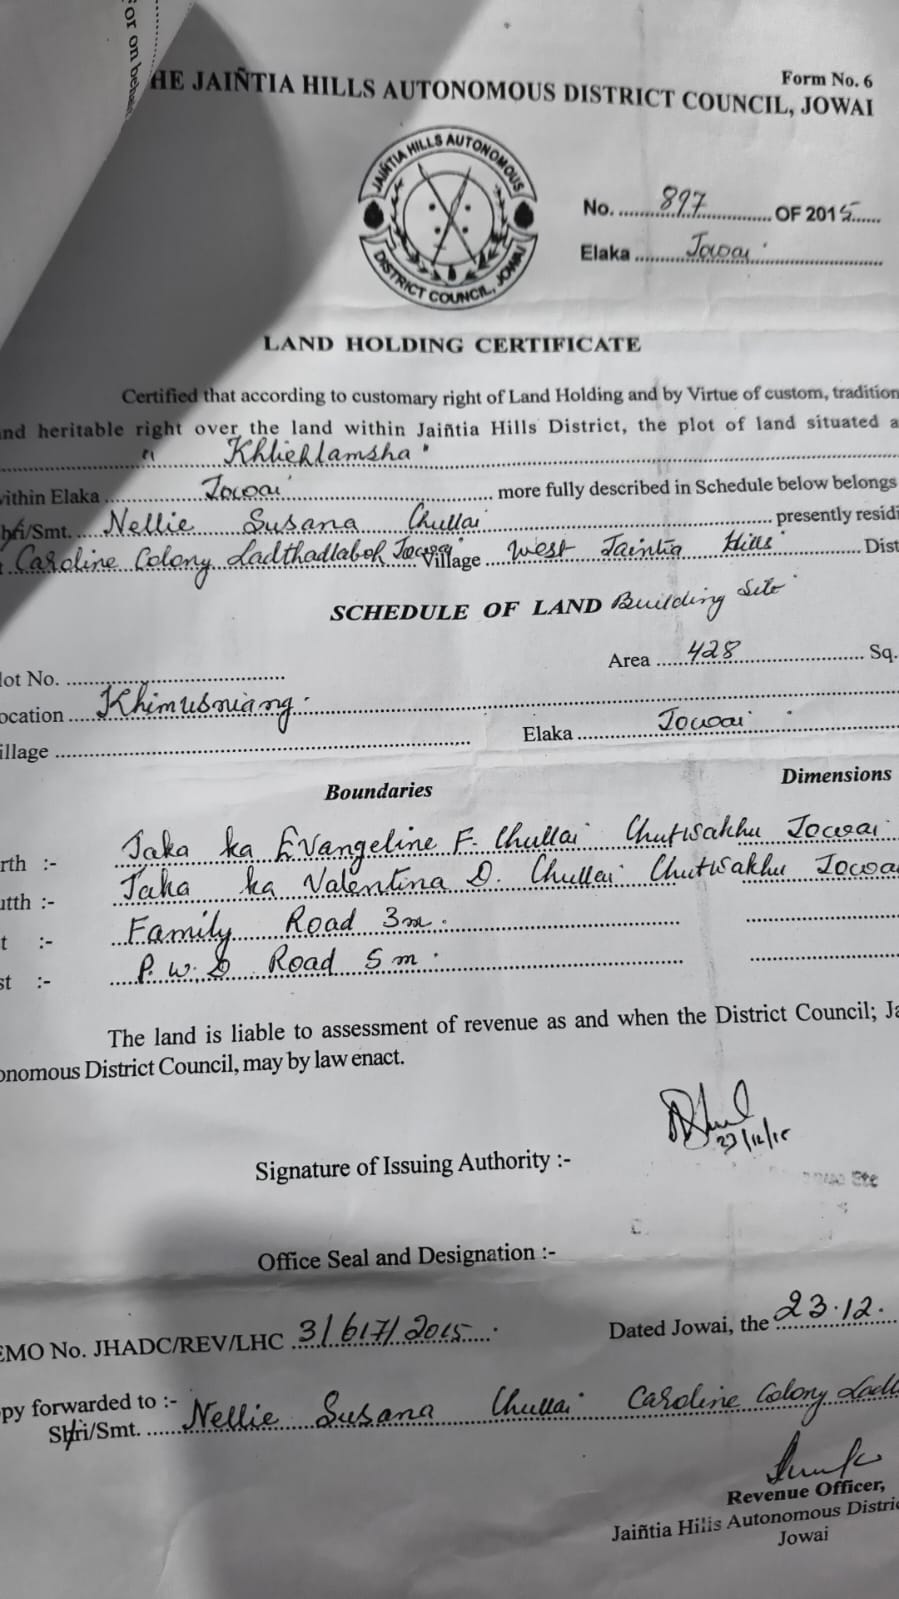 or on beha
Form No. 6
HE JAIÑTIA HILLS AUTONOMOUS DISTRICT COUNCIL, JOWAI
JAIÑTIA HILLS AUTONOMOUS
DISTRICT COUNCIL, JOWAI
No. 897 OF 2015
Elaka Jowai
LAND HOLDING CERTIFICATE
Certified that according to customary right of Land Holding and by Virtue of custom, tradition
nd heritable right over the land within Jaiñtia Hills District, the plot of land situated a
" Khliehlamsha "
within Elaka Jowai more fully described in Schedule below belongs
Shri/Smt. Nellie Susana Chullai presently residi
Caroline Colony Ladthadlaboh Jowai Village West Jaintia Hills Dist
SCHEDULE OF LAND Building Site
lot No.
Area 428 Sq.
ocation Khimusniang
illage
Elaka Jowai
Boundaries
Dimensions
rth :- Jaka ka Evangeline F. Chullai Chutwakhu Jowai
utth :- Jaka ka Valentina D. Chullai Chutwakhu Jowai
t :- Family Road 3m.
st :- P.W.D Road 5m.
The land is liable to assessment of revenue as and when the District Council; Ja
onomous District Council, may by law enact.
23/12/15
Signature of Issuing Authority :-
Office Seal and Designation :-
EMO No. JHADC/REV/LHC 3/617/2015
Dated Jowai, the 23.12.
py forwarded to :-
Shri/Smt. Nellie Susana Chullai Caroline Colony Ladt
Revenue Officer,
Jaiñtia Hills Autonomous Distric
Jowai